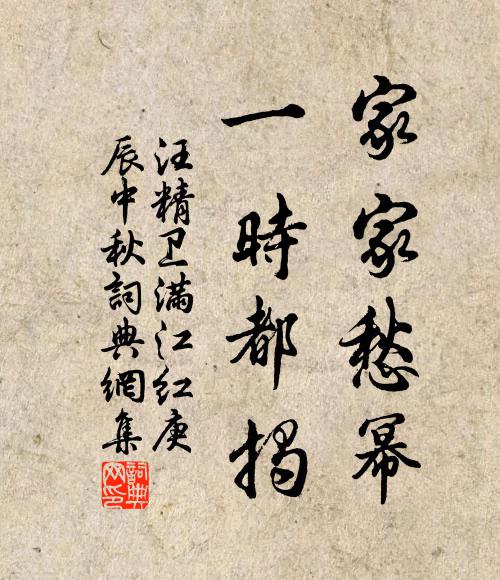 家家愁幂
一時都揭
汪精卫满江红庚
辰中秋詞典網集
詞典網印